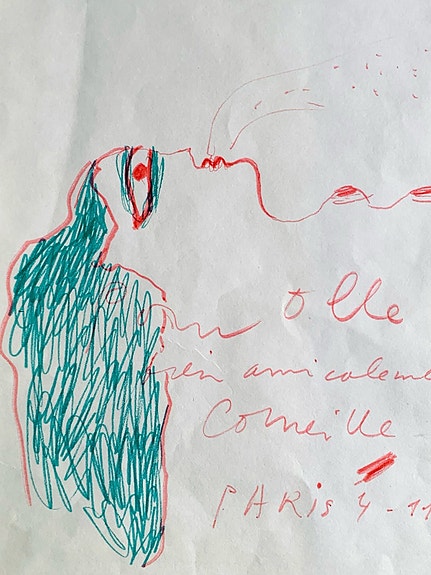 Pour Olle
bien amicaleme
Corneille
PARis 4-11